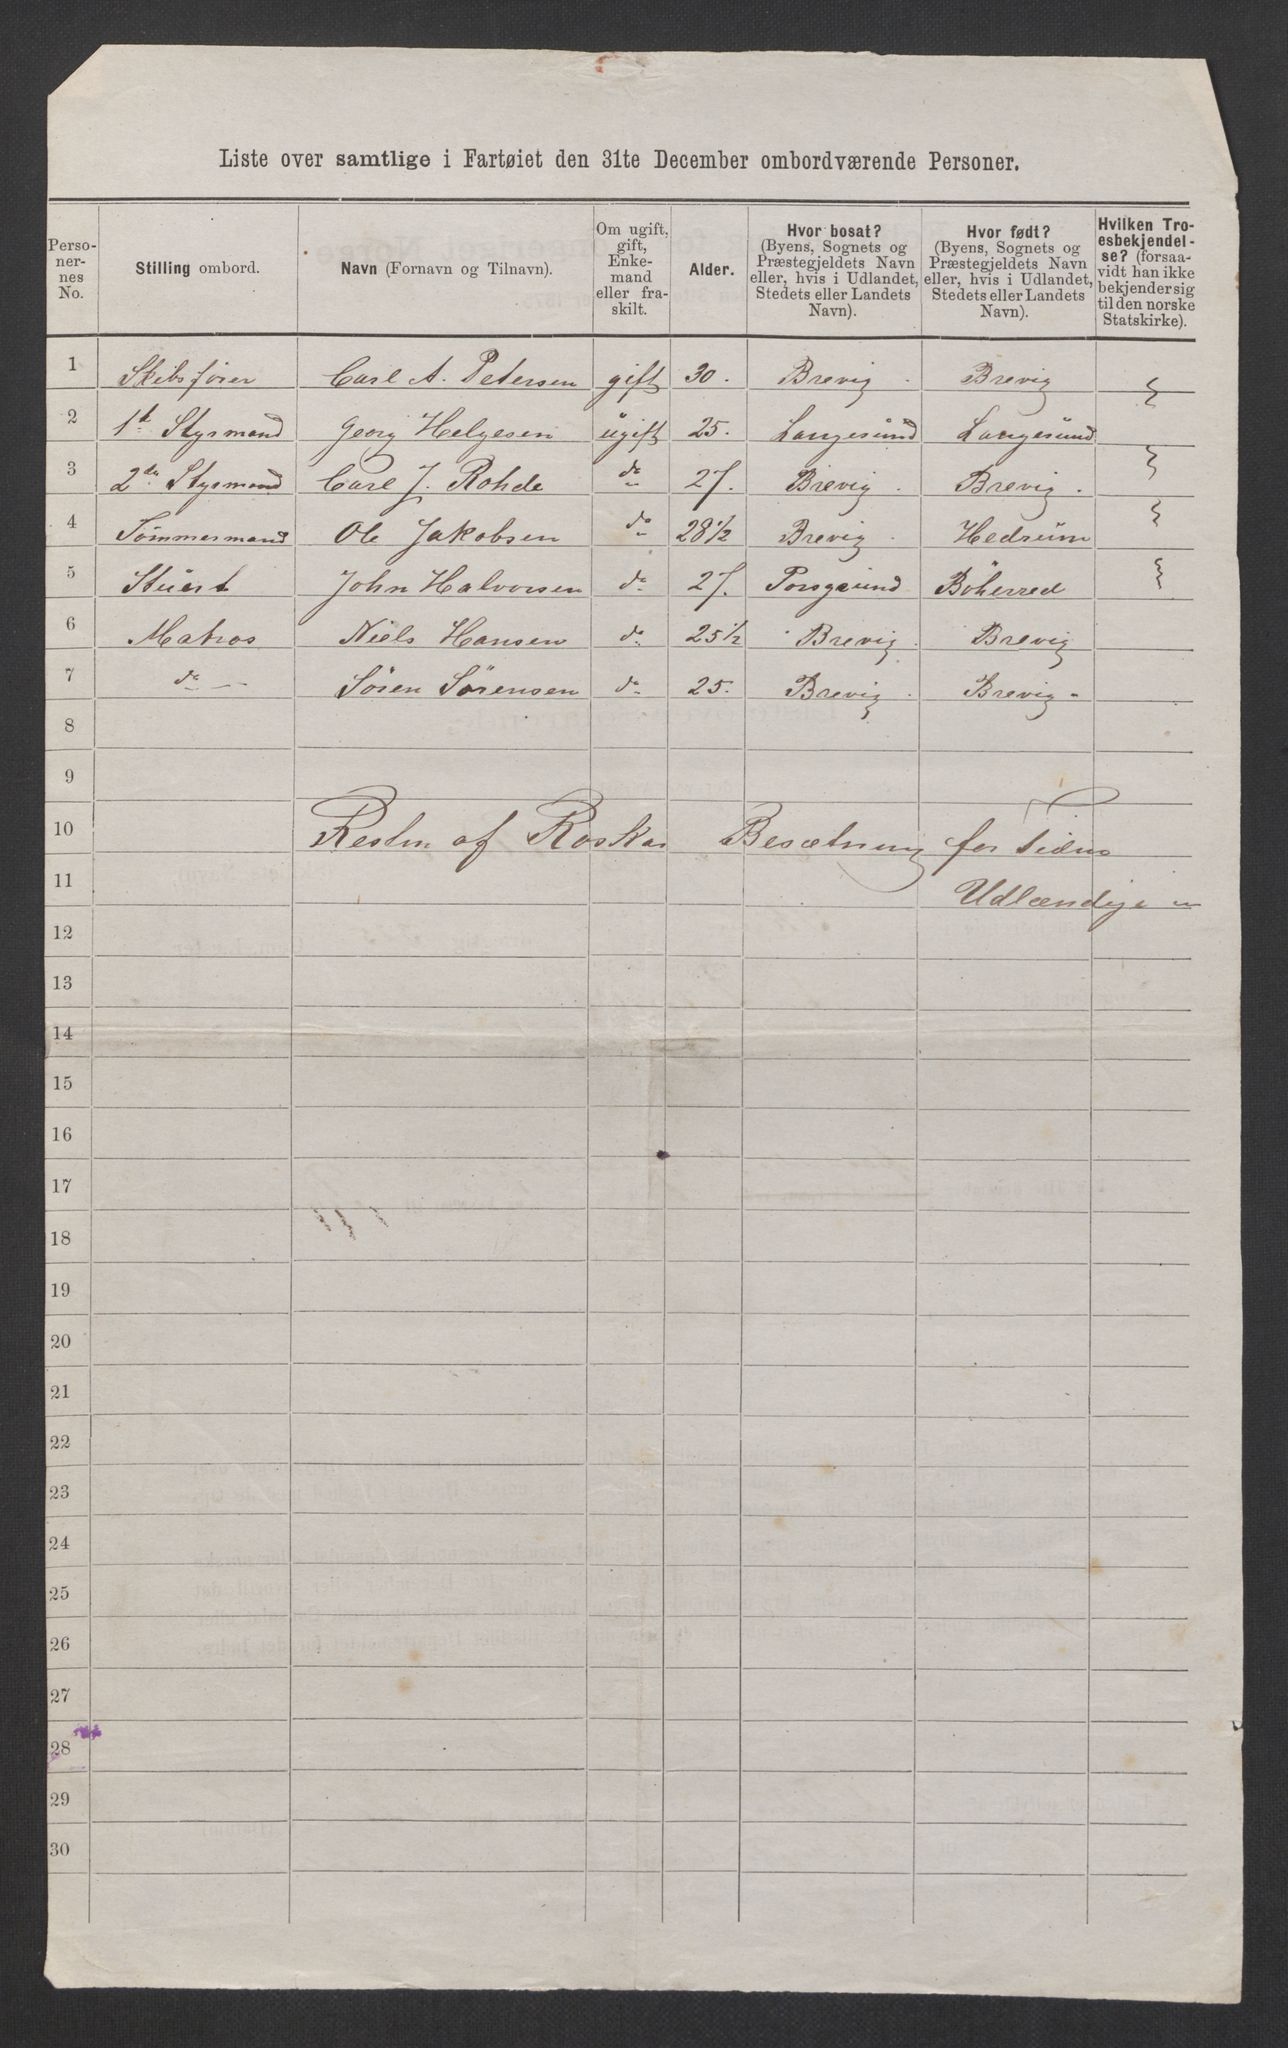 Liste over samtlige i Fartøiet den 31te December ombordværende Personer.
Perso-
ner-
nes
No.
Stilling ombord.
Navn (Fornavn og Tilnavn).
Om ugift,
gift,
Enke-
mand
eller fra-
skilt.
Alder.
Hvor bosat?
(Byens, Sognets og
Præstegjeldets Navn
eller, hvis i Udlandet,
Stedets eller Landets
Navn).
Hvor født?
(Byens, Sognets og
Præstegjeldets Navn
eller, hvis i Udlandet,
Stedets eller Landets
Navn).
Hvilken Tro-
esbekjendel-
se? (forsaa-
vidt han ikke
bekjender sig
til den norske
Statskirke).
1 Skibsfører Carl A. Petersen gift 30. Brevig. Brevig
2 1st Stysmand Georg Helgesen ugift 25. Langesund Langesund
3 2den Stysmand Carl J. Rohde do 27. Brevig. Brevig.
4 Tømmermand Ole Jakobsen do 28 1/2 Brevig. Hedrum
5 Stuert John Halvorsen do 27. Porsgrund Böherred
6 Matros Niels Hansen do 25 1/2 Brevig. Brevig
7 do Sören Sörensen do 25. Brevig. Brevig.
8
9
10 Resten af Besætning for tiden
11 Udlændige
12
13
14
15
16
17
18
19
20
21
22
23
24
25
26
27
28
29
30